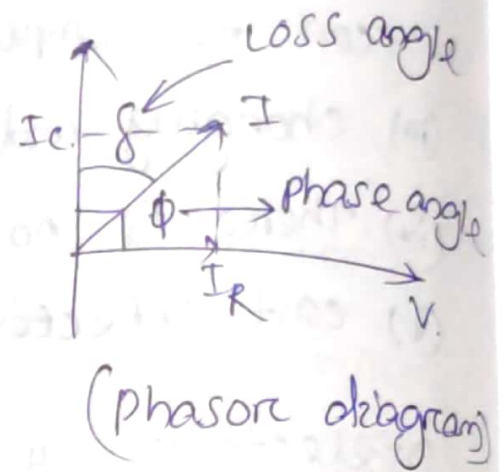 Loss angle
δ
I
Ic
ϕ → phase angle
IR
V.
(phasor diagram)